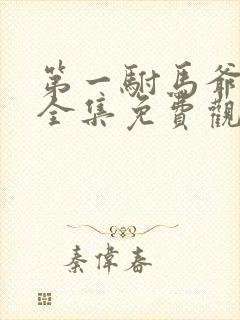 第一駙馬爺
全集免費觀
秦偉春